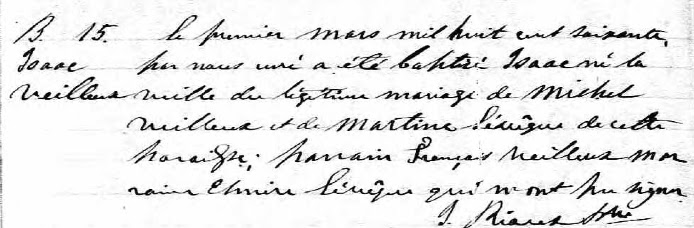 B. 15. Le premier mars mil huit cent soixante,
Isaac par nous curé a été baptisé Isaac né la
Veilleux veille du légitime mariage de Michel
Veilleux et de Martine Lévêque de cette
paroisse; parrain François Veilleux mar
raine Elmire Lévêque qui n'ont pu signer.
J. Ptre